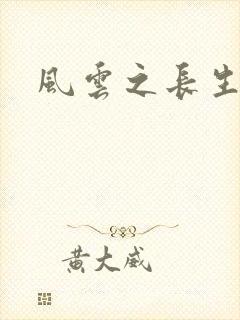 風雲之長生
黃大威